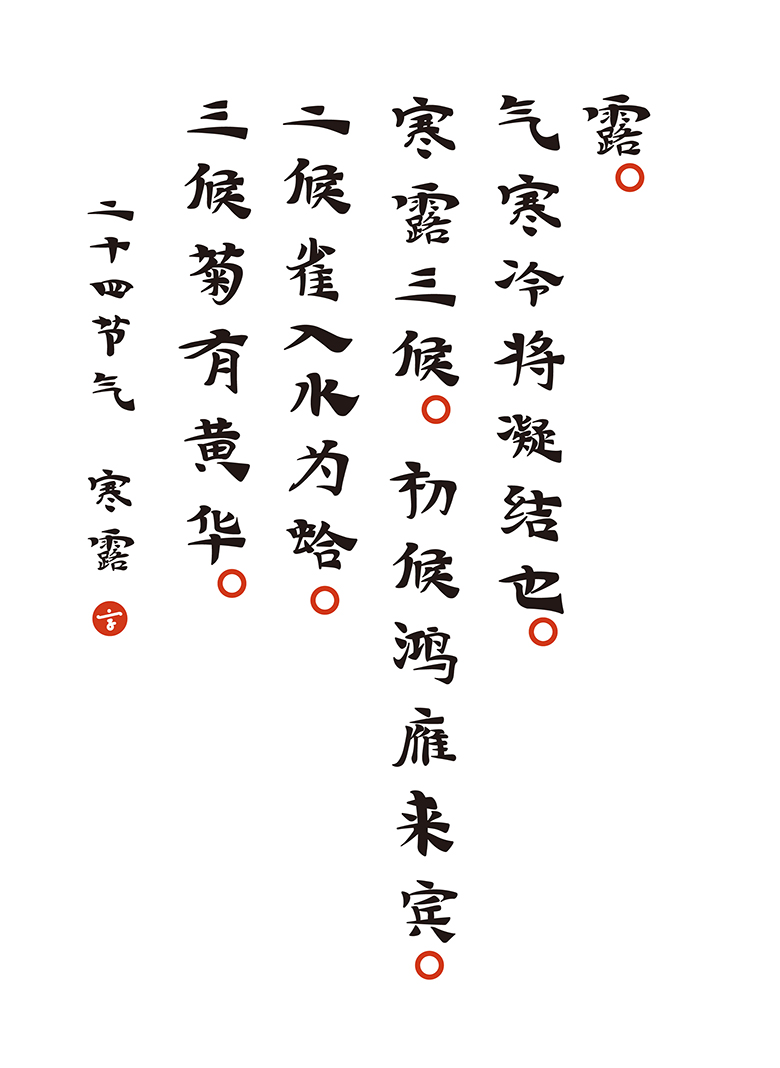 露。
气寒冷将凝结也。
寒露三候。初候鸿雁来宾。
二候雀入水为蛤。
三候菊有黄华。
二十四节气 寒露
言